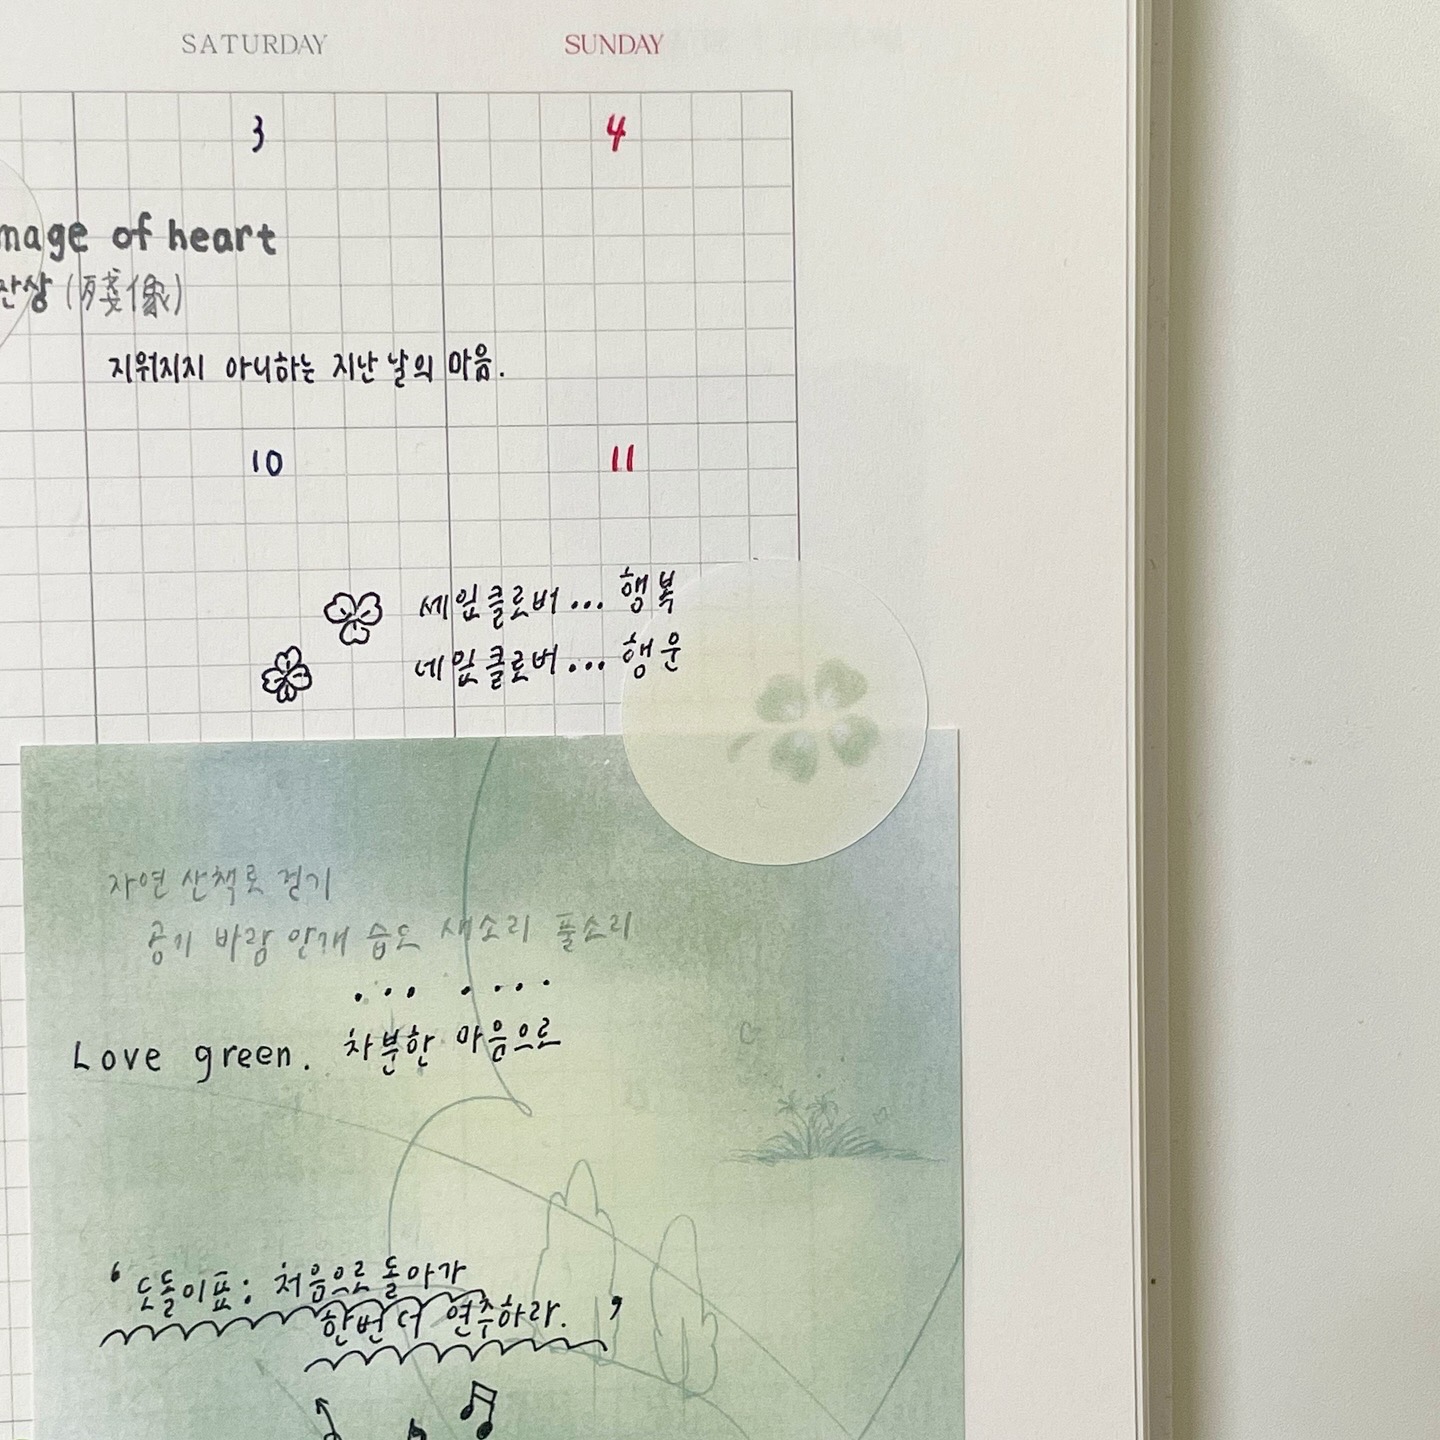 SATURDAY SUNDAY
3 4
mage of heart
잔상 (殘像)
지워지지 아니하는 지난 날의 마음.
10 11
세잎클로버... 행복
네잎클로버... 행운
자연 산책로 걷기
공기 바람 안개 습도 새소리 풀소리
... ....
Love green. 차분한 마음으로
‘도돌이표: 처음으로 돌아가
한번 더 연주하라.’